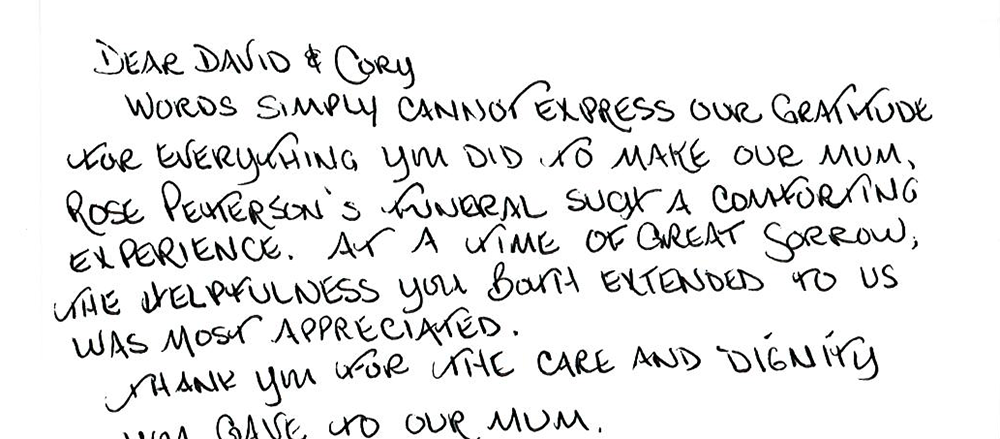 DEAR DAVID & CORY
WORDS SIMPLY CANNOT EXPRESS OUR GRATITUDE
FOR EVERYTHING YOU DID TO MAKE OUR MUM,
ROSE PETERSON'S FUNERAL SUCH A COMFORTING
EXPERIENCE. AT A TIME OF GREAT SORROW,
THE HELPFULNESS YOU BOTH EXTENDED TO US
WAS MOST APPRECIATED.
THANK YOU FOR THE CARE AND DIGNITY
YOU GAVE TO OUR MUM.